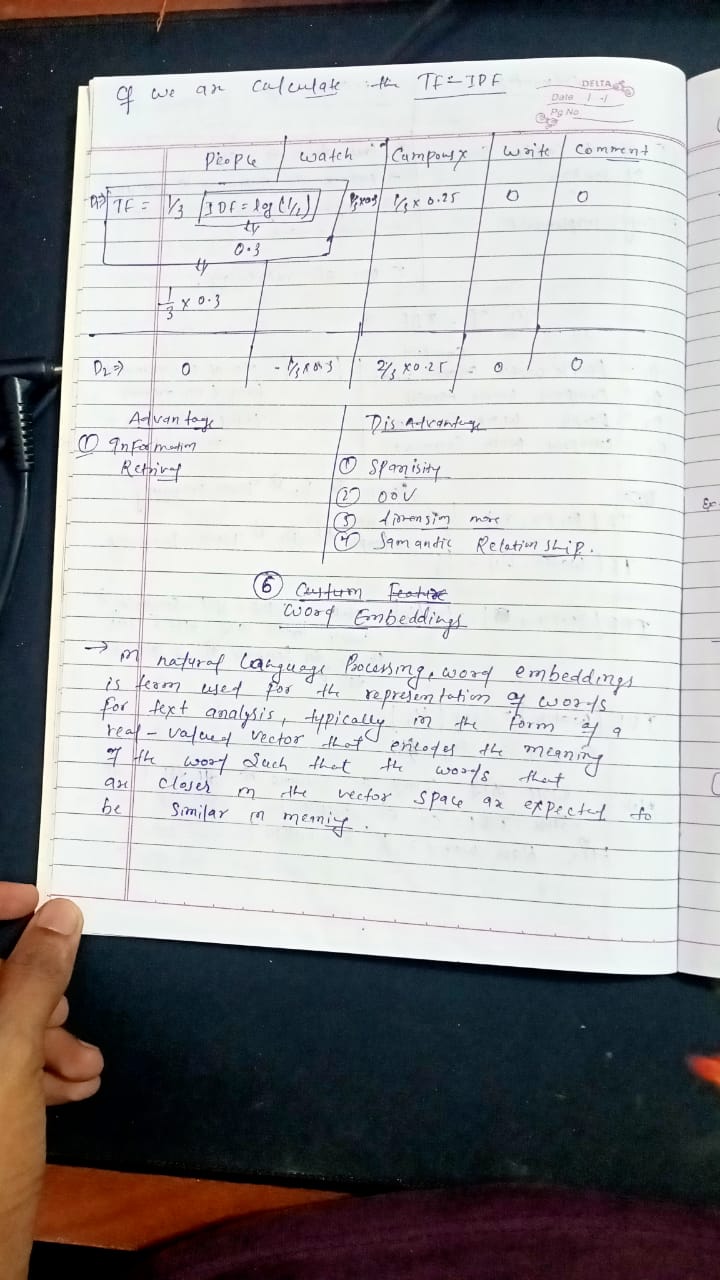 If we are calculate the TF-IDF
DELTA
Date / /
Pg No
People watch Campusx write Comment
D1⇒ TF = 1/3 IDF = log (4/2) 1/3x0.3 1/3 x 0.25 0 0
0.3
1/3 x 0.3
D2⇒ 0 - 1/3x0.3 2/3 x0.25 0 0
Advantage Dis Advantage
① Information
Retrival ① Sparsisity
② OOV
③ dimension more
④ Samandic Relation ship.
⑥ Custum Feature
Word Embeddings
→ In natural Language Processing, word embeddings
is term used for the representation of words
for text analysis, typically in the form of a
real-valued vector that encodes the meaning
of the word Such that the words that
are closer in the vector space are expected to
be Similar in meaning.